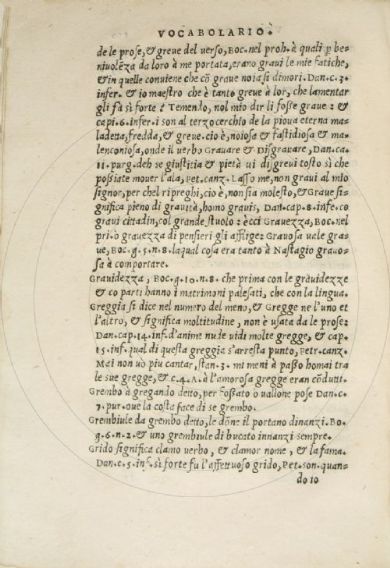 VOCABOLARIO
de le prose, & greve del verso, Boc. nel proh. à quali p be-
nivolēza da loro à me portata, erano gravi le mie fatiche,
& in quelle conviene che cō grave noia si dimori. Dan. c. 3.
infer. & io maestro che è tanto greve à lor, che lamentar
gli fà sì forte: Temendo, nol mio dir li fosse grave: &
capi. 6. infer. i son al terzo cerchio de la piova eterna ma-
ladetta, fredda, & greve. cio è, noiosa & fastidiosa & ma-
lenconiosa, onde il verbo Gravare & Disgravare, Dan. ca.
11. purg. deh se giustitia & pietà vi disgrevi tosto sì che
possiate mover l'ala, Pet. canz. Lasso me, non gravi al mio
signor, per chel ri preghi, cio è, non sia molesto, & Grave si-
gnifica pieno di gravità, homo gravis, Dan. cap. 8. infe. co
gravi cittadin, col grande stuolo: ècci Gravezza, Boc. nel
pri. ò gravezza di pensieri gli affligge: Gravosa vale gra-
ve, Boc. g. 5. n. 8. la qual cosa era tanto à Nastagio gravo-
sa à comportare.
Gravidezza, Boc. g. 10. n. 8. che prima con le gràvidezze
& co parti hanno i matrimoni palesati, che con la lingua.
Greggia si dice nel numero del meno, & Gregge ne l'uno et
l'altro, & significa moltitudine, non è usata da le prose:
Dan. cap. 14. inf. d'anime nude vidi molte gregge, & cap.
15. inf. qual di questa greggia s'arresta punto, Petr. canz.
Mai non vò piu cantar, stan. 3. mi meni à passo homai tra
le sue gregge, & c. 4. A. à l'amorosa gregge eran cōdutti.
Grembo à gregando detto, per fossato o vallone pose Dan. c.
7. pur. ove la costa face di se grembo.
Grembiule da grembo detto, le dōne il portano dinanzi. Bo.
g. 6. n. 2. & uno grembiule di bucato innanzi sempre.
Grido significa clamo verbo, & clamor nome, & la fama.
Dan. c. 5. inf. sì forte fu l'affettuoso grido, Pet. son. quan-
do io